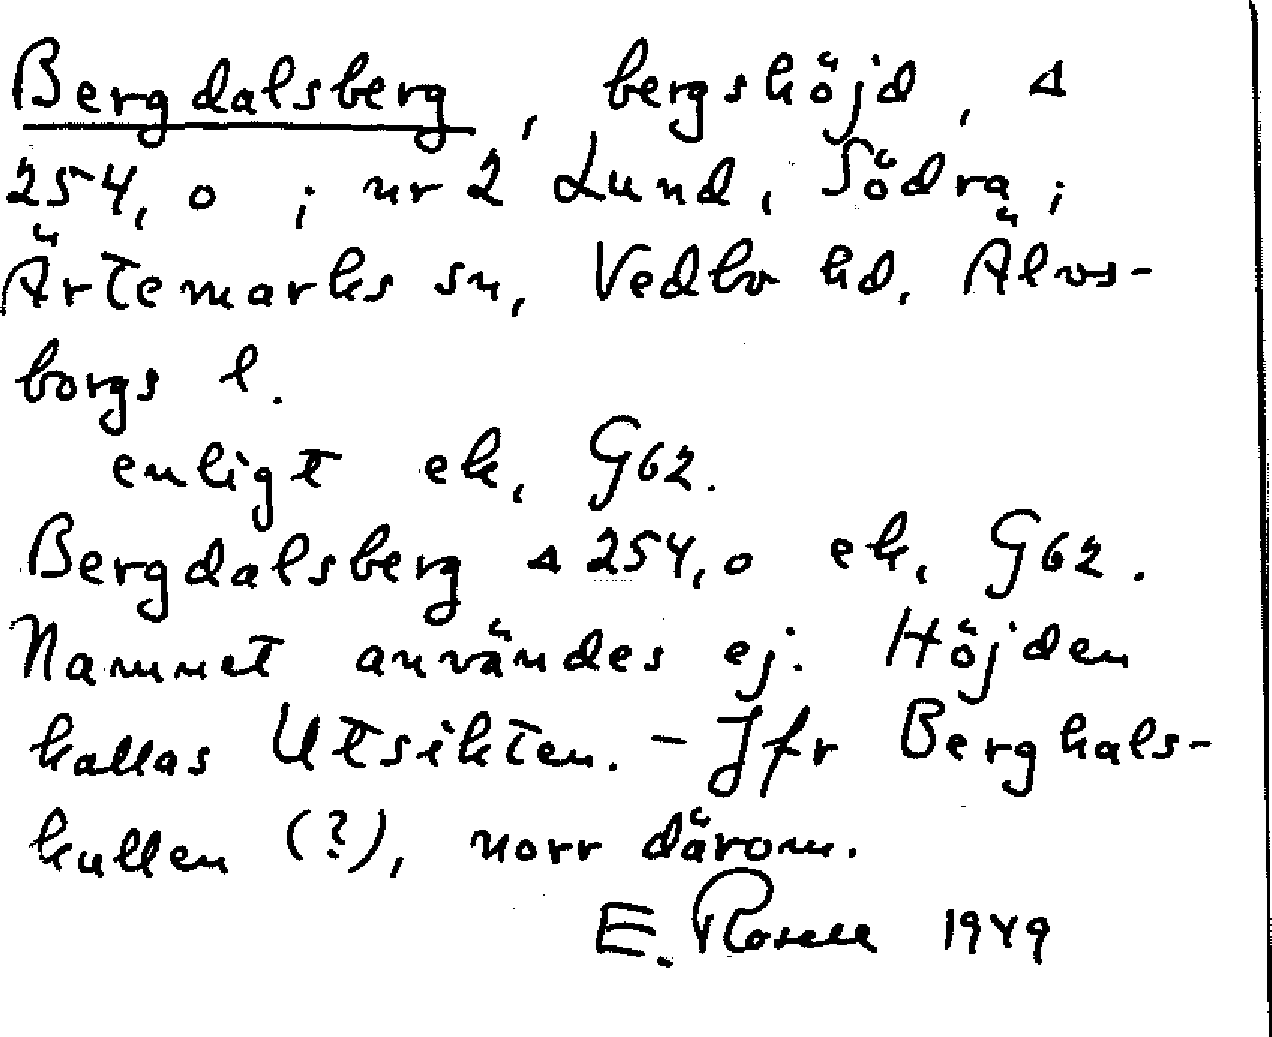 Bergdalsberg, bergshöjd, Δ
254,0 ; nr 2 Lund, Södra ;
Ärtemarks sn, Vedbo hd, Älvs-
borgs l.
enligt ek, G62.
Bergdalsberg Δ 254,0 ek, G62.
Namnet användes ej. Höjden
kallas Utsikten. - Jfr Berghals-
kullen (?), norr därom.
E. Rosell 1949